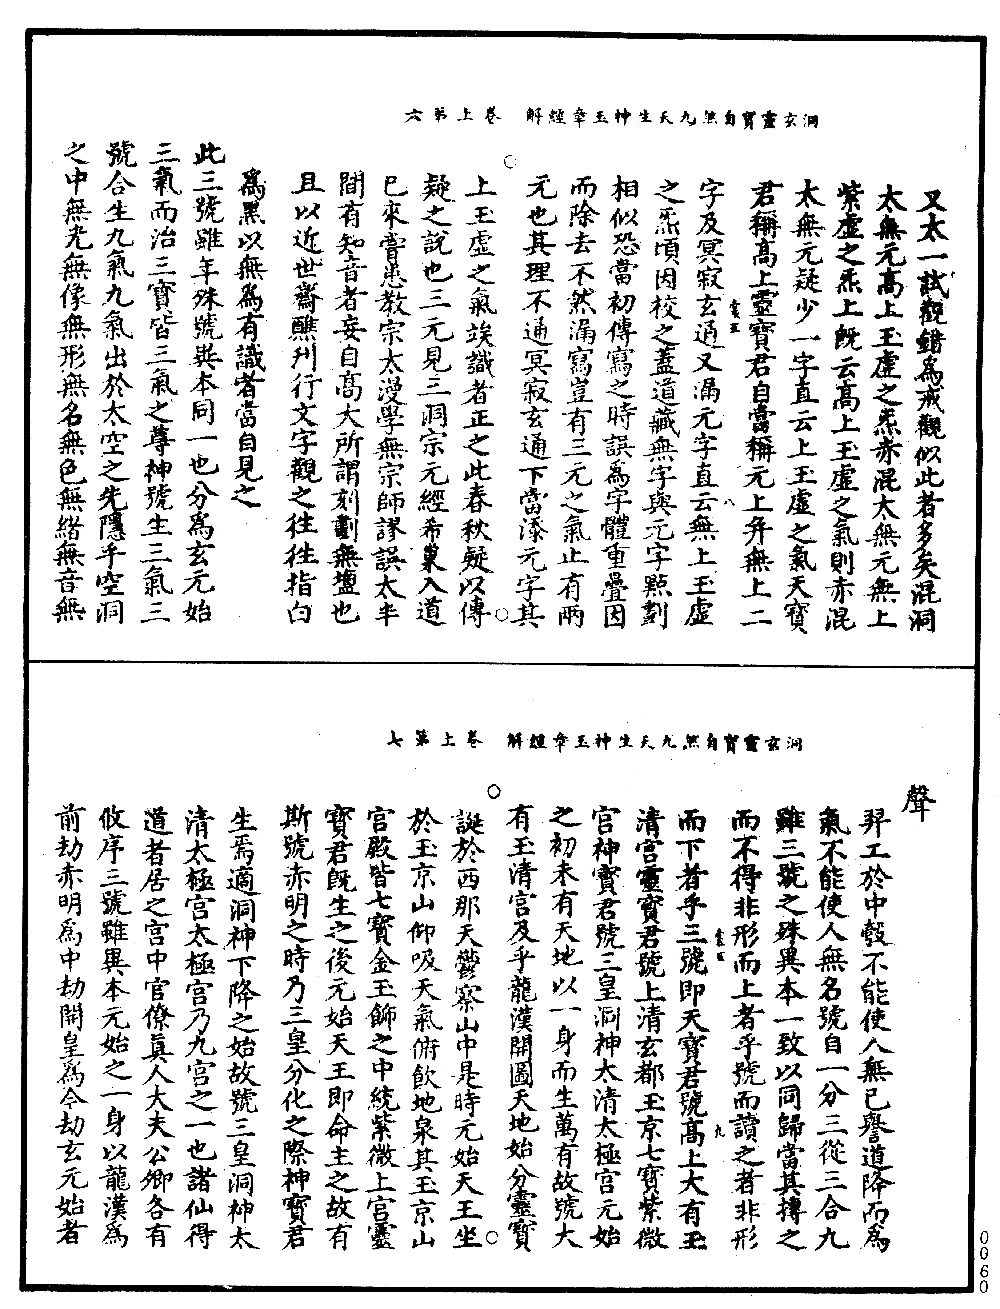 洞玄靈寶自然九天生神玉章經解　卷上第六
又太一誡觀錯爲戒觀似此者多矣混洞
太無元高上玉虛之炁赤混太無元無上
紫虛之炁上既云高上玉虛之氣則赤混
太無元疑少一字直云上玉虛之氣天寶
君稱高上靈寶君自當稱元上并無上二
字及冥寂玄通又漏元字直云無上玉虛
之炁頃因校之蓋道藏無字與元字點劃
相似恐當初傳寫之時誤爲字體重疊因
而除去不然漏寫豈有三元之氣止有兩
元也其理不通冥寂玄通下當添元字其
上玉虛之氣竢識者正之此春秋疑以傳
疑之說也三元見三洞宗元經希巢入道
已來嘗患教宗太漫學無宗師謬誤太半
間有知音者妄自高大所謂刻劃無鹽也
且以近世齋醮刋行文字觀之徃徃指白
爲黑以無爲有識者當自見之
此三號雖年殊號與本同一也分爲玄元始
三氣而治三寶皆三氣之尊神號生三氣三
號合生九氣九氣出於太空之先隱乎空洞
之中無光無像無形無名無色無緒無音無
洞玄靈寶自然九天生神玉章經解　卷上第七
聲
羿工於中彀不能使人無已譽道降而爲
氣不能使人無名號自一分三從三合九
雖三號之殊異本一致以同歸當其摶之
而不得非形而上者乎號而讀之者非形
而下者乎三號即天寶君號高上大有玉
清宮靈寶君號上清玄都玉京七寶紫微
宮神寶君號三皇洞神太清太極宮元始
之初未有天地以一身而生萬有故號大
有玉清宮及乎龍漢開圖天地始分靈寶
誕於西那天鬱察山中是時元始天王坐
於玉京山仰吸天氣俯飲地泉其玉京山
宮殿皆七寶金玉飾之中統紫微上宮靈
寶君既生之後元始天王即命主之故有
斯號赤明之時乃三皇分化之際神寶君
生焉適洞神下降之始故號三皇洞神太
清太極宮太極宮乃九宮之一也諸仙得
道者居之宮中官僚真人大夫公卿各有
攸序三號雖異本元始之一身以龍漢爲
前劫赤明爲中劫開皇爲今劫玄元始者
0060